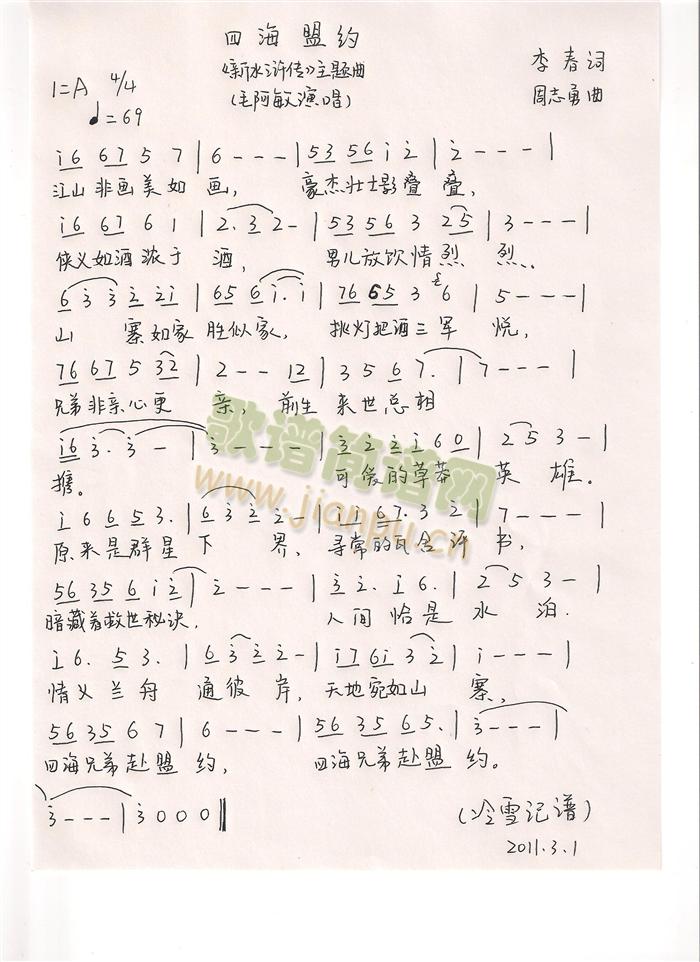 四海盟约
《新水浒传》主题曲
(毛阿敏演唱)
李春词
周志勇曲
1=A 4/4
♩=69
i6 67 5 7 | 6 - - - | 53 56 i 2̇ | 2̇ - - - |
江山非画美如画， 豪杰壮士影叠叠，
i6 67 6 1 | 2. 3 2 - | 53 56 3 25 | 3 - - - |
侠义如酒浓于酒， 男儿放饮情烈烈、
6 3̇ 3̇ 2̇ 2̇i | 65 6 i. i | 76 65 3 6 | 5 - - - |
山寨如家胜似家， 挑灯把酒三军悦，
76 67 5 32 | 2 - - 12 | 3 5 6 7. | 7 - - - |
兄弟非亲心更亲， 前生来世总相
i6 3̇. 3̇ - | 3̇ - - - | 3̇ 2̇ 2̇ i 6 0 | 2 5 3 - |
携。 可俊的草莽英雄。
i 6 6 5 3. | 6 3̇ 2̇ 2̇ - | i i 67. 3 2 | 7 - - - |
原来是群星下界， 寻常的瓦舍评书，
56 35 6 i 2̇ | 2̇ - - - | 3̇ 2̇. i 6. | 2 5 3 - |
暗藏着救世秘诀， 人间恰是水泊.
i 6. 5 3. | 6 3̇ 2̇ 2̇ - | i7 6i 3̇ 2̇ | i - - - |
情义兰舟通彼岸， 天地宛如山寨，
56 35 6 7 | 6 - - - | 56 35 65. | 3̇ - - - |
四海兄弟赴盟约， 四海兄弟赴盟约。
3̇ - - - | 3̇ 0 0 0 ‖
(冷雪记谱)
2011.3.1
歌谱简谱网
www.jianpu.cn